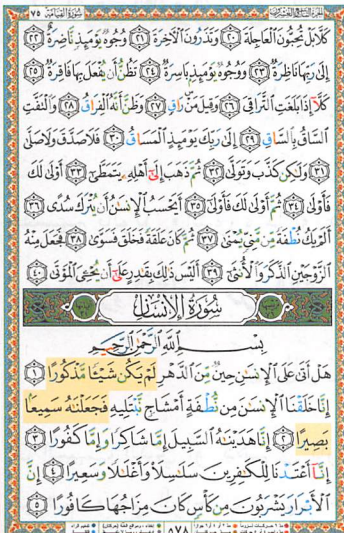 سورة القيامة ٧٥
كَلَّا بَلْ تُحِبُّونَ الْعَاجِلَةَ ٢٠ وَتَذَرُونَ الْآخِرَةَ ٢١ وُجُوهٌ يَوْمَئِذٍ نَّاضِرَةٌ ٢٢
إِلَىٰ رَبِّهَا نَاظِرَةٌ ٢٣ وَوُجُوهٌ يَوْمَئِذٍ بَاسِرَةٌ ٢٤ تَظُنُّ أَن يُفْعَلَ بِهَا فَاقِرَةٌ ٢٥
كَلَّا إِذَا بَلَغَتِ التَّرَاقِيَ ٢٦ وَقِيلَ مَنْ رَاقٍ ٢٧ وَظَنَّ أَنَّهُ الْفِرَاقُ ٢٨ وَالْتَفَّتِ
السَّاقُ بِالسَّاقِ ٢٩ إِلَىٰ رَبِّكَ يَوْمَئِذٍ الْمَسَاقُ ٣٠ فَلَا صَدَّقَ وَلَا صَلَّىٰ
٣١ وَلَٰكِن كَذَّبَ وَتَوَلَّىٰ ٣٢ ثُمَّ ذَهَبَ إِلَىٰ أَهْلِهِ يَتَمَطَّىٰ ٣٣ أَوْلَىٰ لَكَ
فَأَوْلَىٰ ٣٤ ثُمَّ أَوْلَىٰ لَكَ فَأَوْلَىٰ ٣٥ أَيَحْسَبُ الْإِنسَٰنُ أَن يُتْرَكَ سُدًى ٣٦
أَلَمْ يَكُ نُطْفَةً مِّن مَّنِيٍّ يُمْنَىٰ ٣٧ ثُمَّ كَانَ عَلَقَةً فَخَلَقَ فَسَوَّىٰ ٣٨ فَجَعَلَ مِنْهُ
الزَّوْجَيْنِ الذَّكَرَ وَالْأُنثَىٰ ٣٩ أَلَيْسَ ذَٰلِكَ بِقَٰدِرٍ عَلَىٰ أَن يُحْـِۧيَ الْمَوْتَىٰ ٤٠
سورة الإنسان
بِسْمِ اللَّهِ الرَّحْمَٰنِ الرَّحِيمِ
هَلْ أَتَىٰ عَلَى الْإِنسَٰنِ حِينٌ مِّنَ الدَّهْرِ لَمْ يَكُن شَيْـًٔا مَّذْكُورًا ١
إِنَّا خَلَقْنَا الْإِنسَٰنَ مِن نُّطْفَةٍ أَمْشَاجٍ نَّبْتَلِيهِ فَجَعَلْنَٰهُ سَمِيعًا
بَصِيرًا ٢ إِنَّا هَدَيْنَٰهُ السَّبِيلَ إِمَّا شَاكِرًا وَإِمَّا كَفُورًا ٣
إِنَّا أَعْتَدْنَا لِلْكَٰفِرِينَ سَلَٰسِلَا۟ وَأَغْلَٰلًا وَسَعِيرًا ٤ إِنَّ
الْأَبْرَارَ يَشْرَبُونَ مِن كَأْسٍ كَانَ مِزَاجُهَا كَافُورًا ٥
٥٧٨